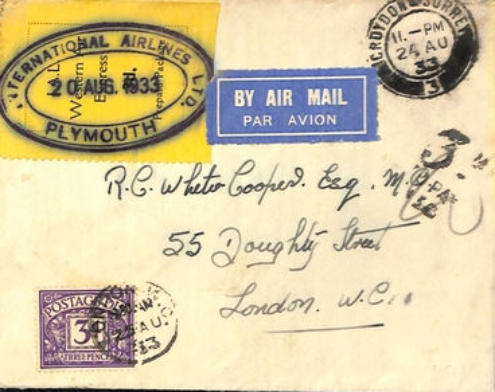 INTERNATIONAL AIRLINES LTD.
20 AUG. 1933
PLYMOUTH
Western
Express
BY AIR MAIL
PAR AVION
CROYDON SURREY
11.-PM
24 AU
33
3
3
R.C. Cooper. Esq. M.C
55 Doughty Street
London. W.C.
POSTAGE DUE
3D
THREE PENCE
25 AU
33